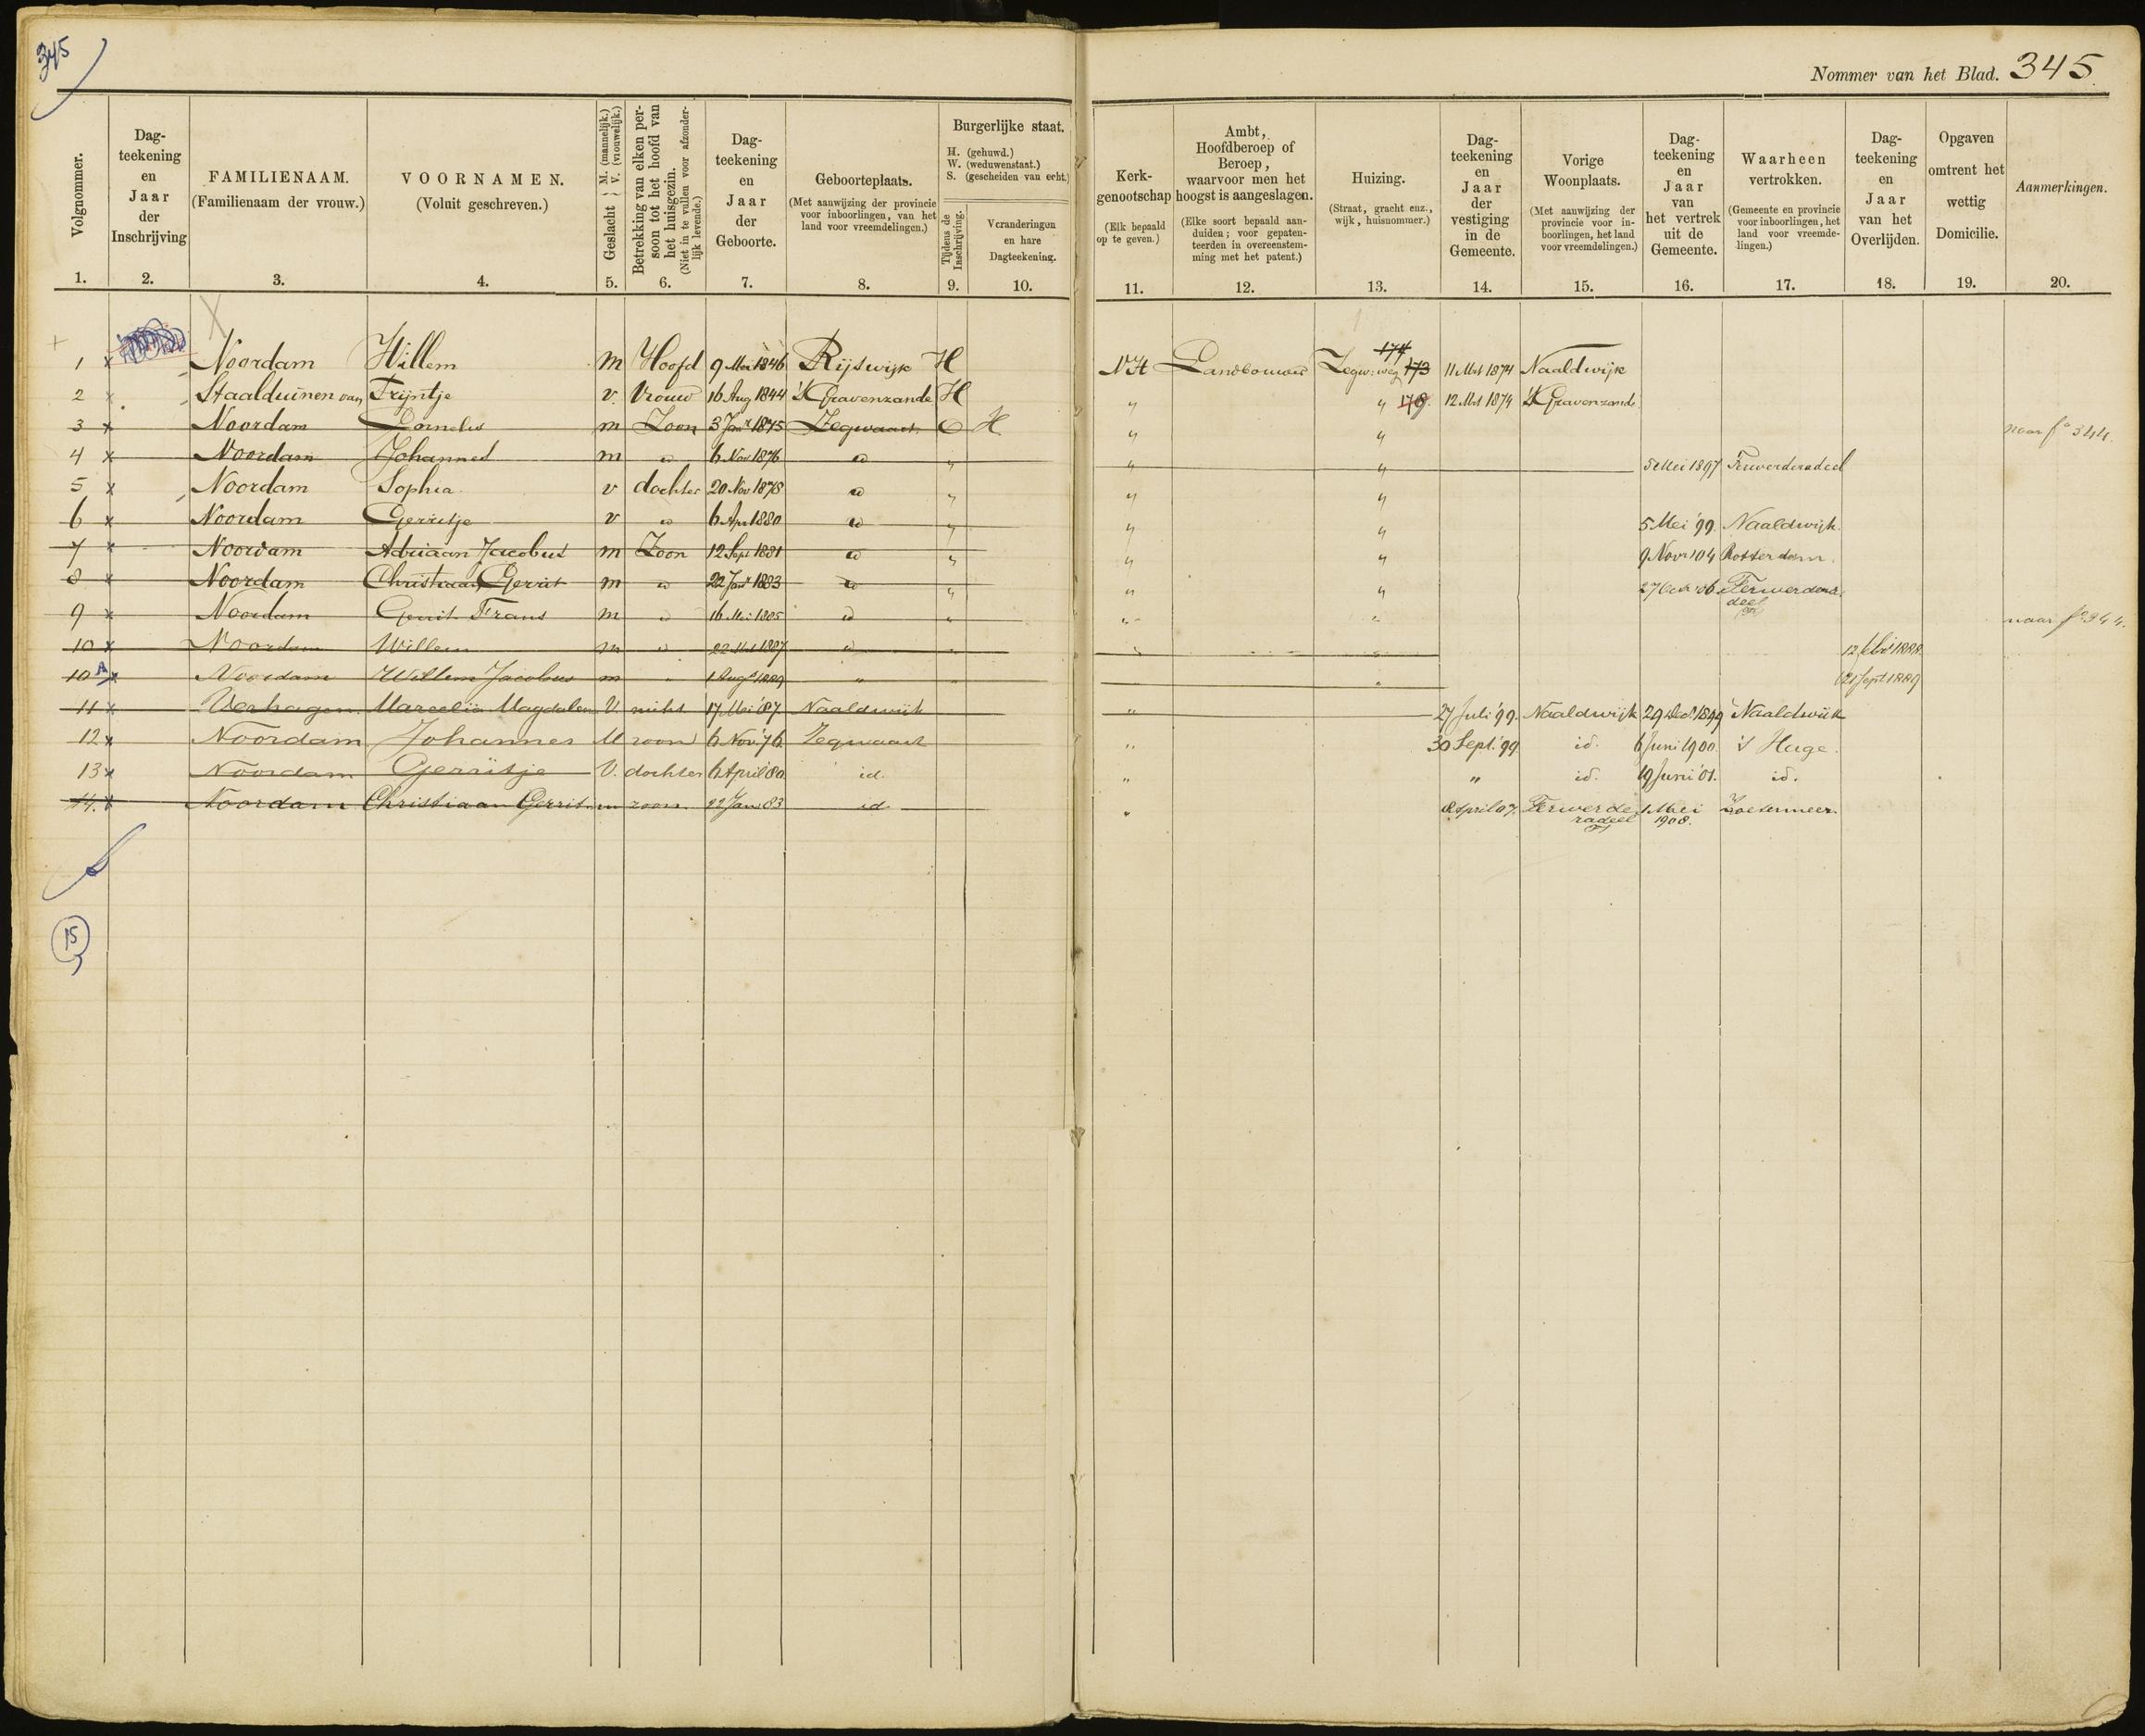 345
Nommer van het Blad. 345
Volgnommer.
Dag-
teekening
en
Jaar
der
Inschrijving
FAMILIENAAM.
(Familienaam der vrouw.)
VOORNAMEN.
(Voluit geschreven.)
Geslacht { M. (mannelijk.) V. (vrouwelijk.)
Betrekking van elken per-
soon tot het hoofd van
het huisgezin.
(Niet in te vullen voor afzonder-
lijk levende.)
Dag-
teekening
en
Jaar
der
Geboorte.
Geboorteplaats.
(Met aanwijzing der provincie
voor inboorlingen, van het
land voor vreemdelingen.)
Burgerlijke staat.
H. (gehuwd.)
W. (weduwenstaat.)
S. (gescheiden van echt.)
Tijdens de
Inschrijving.
Veranderingen
en hare
Dagteekening.
Kerk-
genootschap
(Elk bepaald
op te geven.)
Ambt,
Hoofdberoep of
Beroep,
waarvoor men het
hoogst is aangeslagen.
(Elke soort bepaald aan-
duiden; voor gepaten-
teerden in overeenstem-
ming met het patent.)
Huizing.
(Straat, gracht enz.,
wijk, huisnommer.)
Dag-
teekening
en
Jaar
der
vestiging
in de
Gemeente.
Vorige
Woonplaats.
(Met aanwijzing der
provincie voor in-
boorlingen, het land
voor vreemdelingen.)
Dag-
teekening
en
Jaar
van
het vertrek
uit de
Gemeente.
Waarheen
vertrokken.
(Gemeente en provincie
voor inboorlingen, het
land voor vreemde-
lingen.)
Dag-
teekening
en
Jaar
van het
Overlijden.
Opgaven
omtrent het
wettig
Domicilie.
Aanmerkingen.
1. 2. 3. 4. 5. 6. 7. 8. 9. 10. 11. 12. 13. 14. 15. 16. 17. 18. 19. 20.
174
1 x Noordam Willem m Hoofd 9 Mei 1846 Rijswijk H NH Landbouwer Zegw: weg 173 11 Mrt 1874 Naaldwijk
2 x Staalduinen van Trijntje v. Vrouw 16 Aug 1844 's Gravenzande H " " 178. 12 Mrt 1874 's Gravenzande
3 x Noordam Cornelis m Zoon 3 Jan 1875 Zegwaart O H. " " naar fo 344.
4 x Noordam Johannes m " 6 Nov 1876 " " " " 5 Mei 1897 Ferwerderadeel
5 x Noordam Sophia v dochter 20 Nov 1878 " " " "
6 x Noordam Gerritje v " 6 Apr 1880 " " " " 5 Mei '99. Naaldwijk.
7 x Noordam Adriaan Jacobus m Zoon 12 Sept 1881 " " " " 9 Novr '04 Rotterdam.
8 x Noordam Christiaan Gerrit m " 22 Jan 1883 " " " " 27 Oct '06 Ferwerdera-
deel
9 x Noordam Gerrit Frans m " 16 Mei 1885 " " " " naar fo 344.
10 x Noordam Willem m " 22 Mrt 1887 " " " " 12 Febr 1888.
10 A x Noordam Willem Jacobus m " 1 Augs 1889 " " " 21 Sept 1889
11 x Verhagen Marcelia Magdalena V. nicht 17 Mei '87 Naaldwijk " 27 Juli '99. Naaldwijk 29 Dec. 1899 Naaldwijk
12 x Noordam Johannes M zoon 6 Nov. '76. Zegwaart " 30 Sept. '99 id. 6 Juni 1900. 's Hage.
13 x Noordam Gerritje V. dochter 6 April '80. id. " " id. 19 Juni '01. id.
14. x Noordam Christiaan Gerrit m zoon. 22 Jan. 83 id. " 8 April 07. Ferwerde- 1 Mei Zoetermeer.
radeel 1908.
15